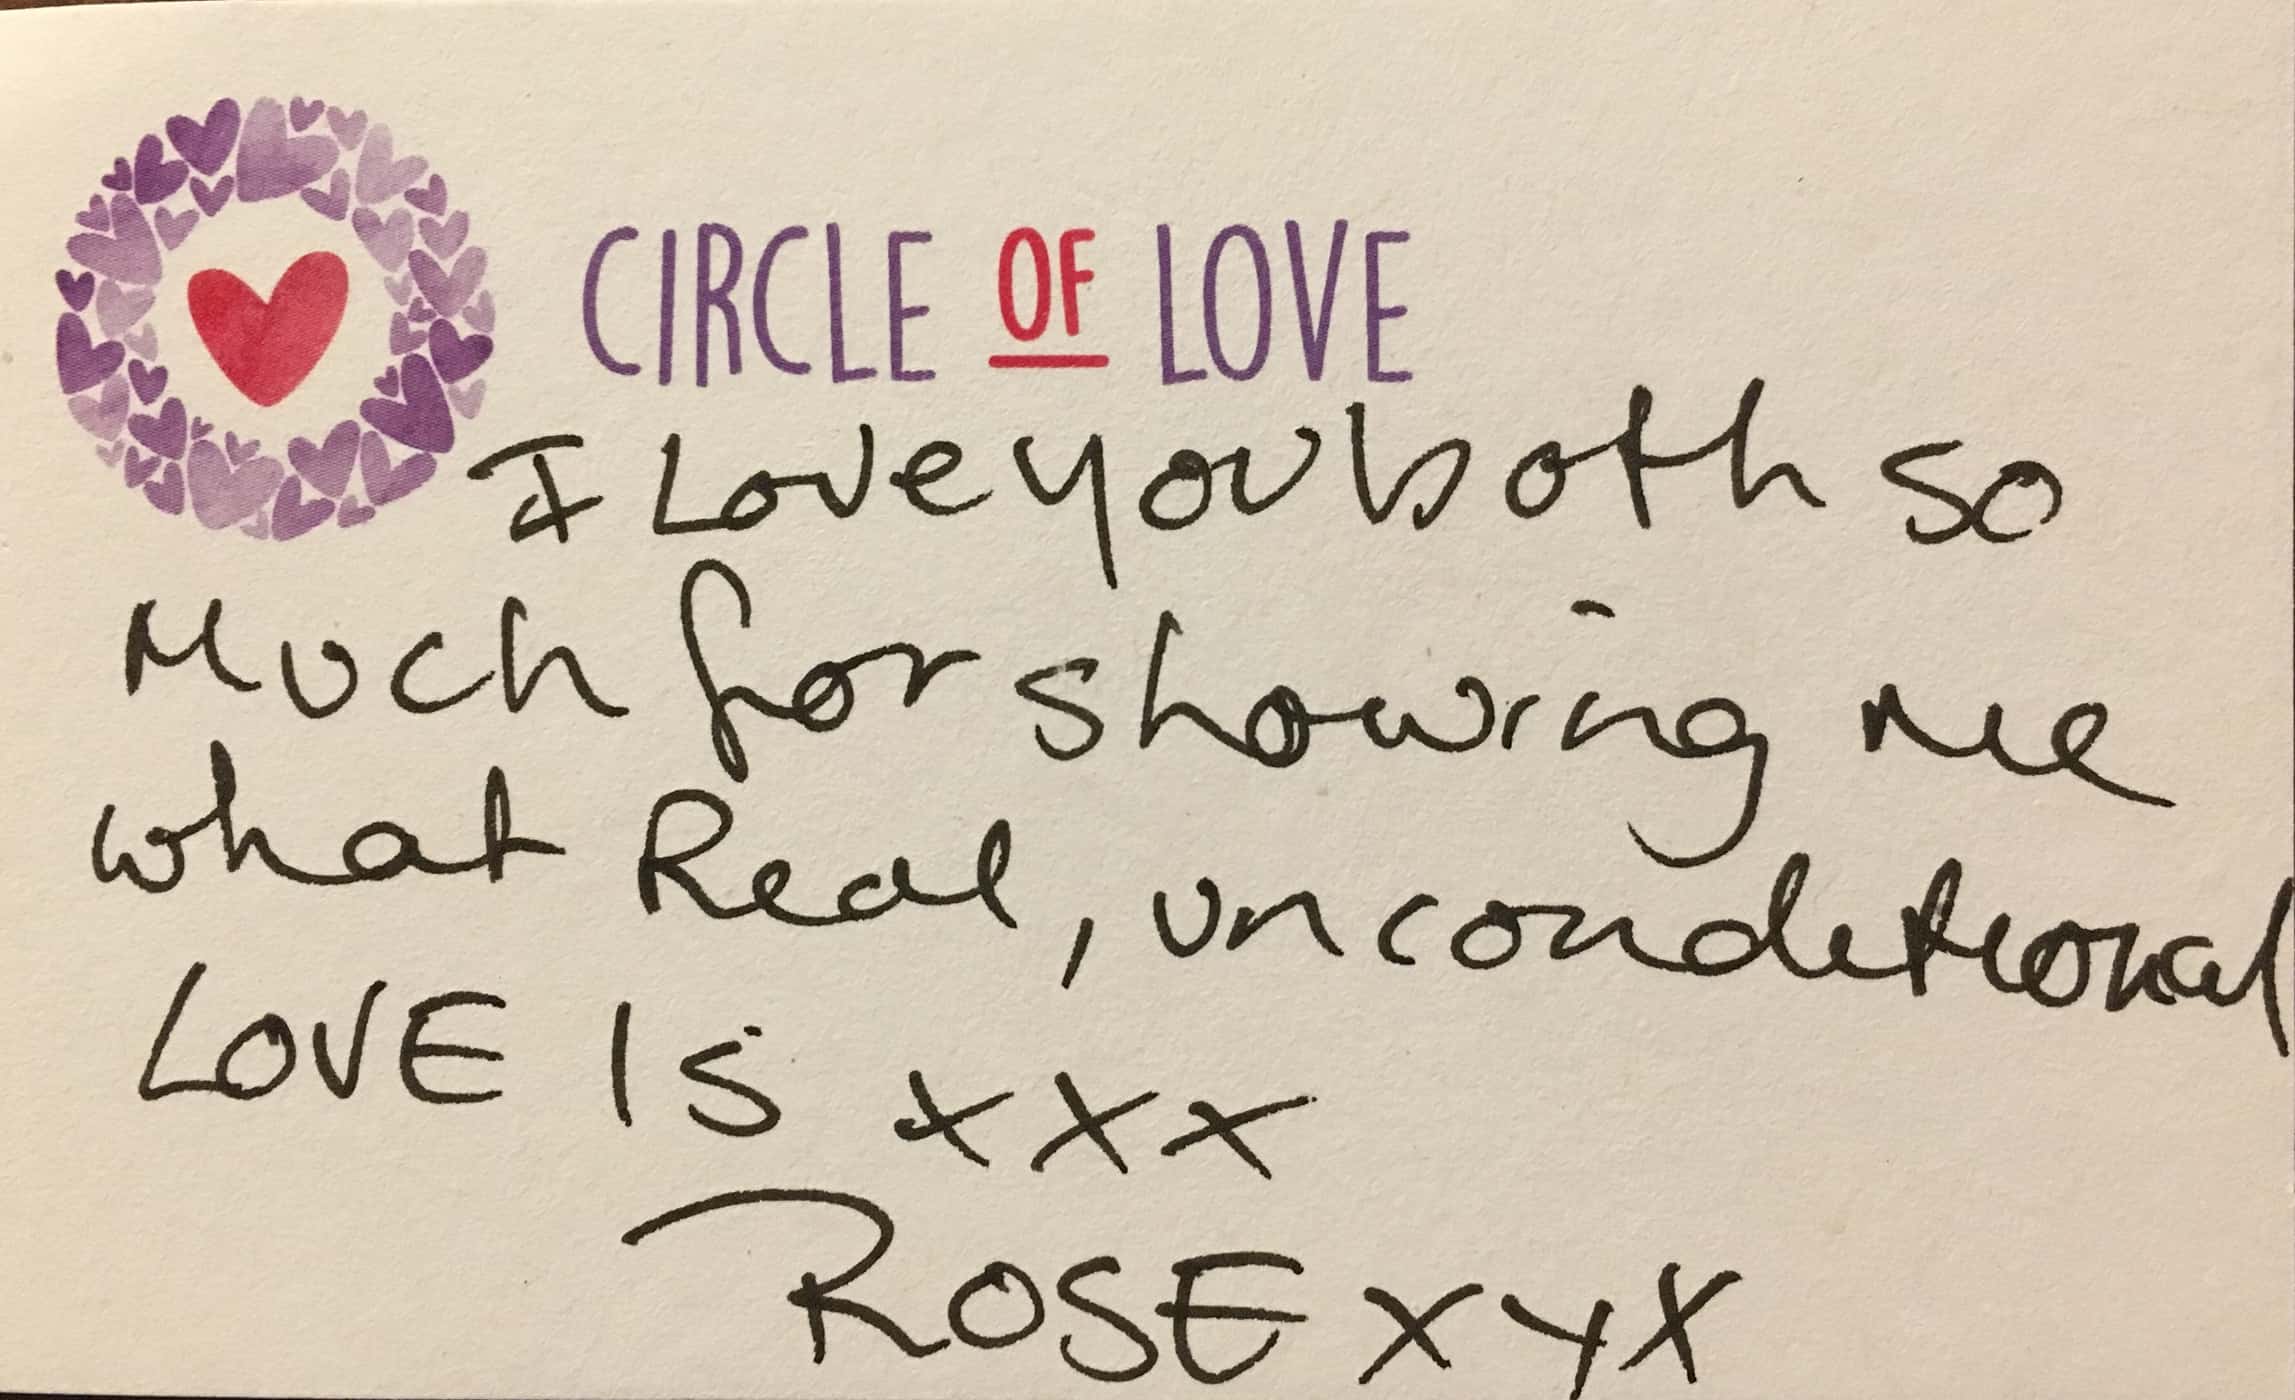 CIRCLE OF LOVE
I Love you both so
Much for showing me
what Real, unconditional
LOVE IS xxx
ROSE xxx